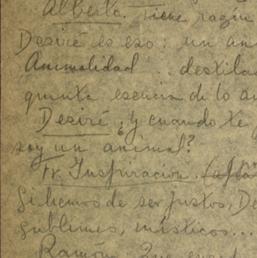 Alberto. Tiene razón
Desiré es eso: un an
Animalidad destila
quinta esencia de lo a
Desiré ¿Y cuando te
soy un animal?
Tr. Inspiración.
Si hemos de ser justos, De
sublimes, místicos...
Ramón. Que